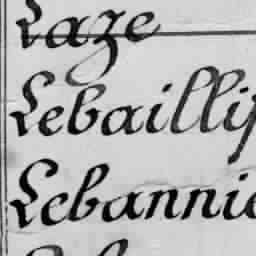 Laze
Lebailli
Lebanni